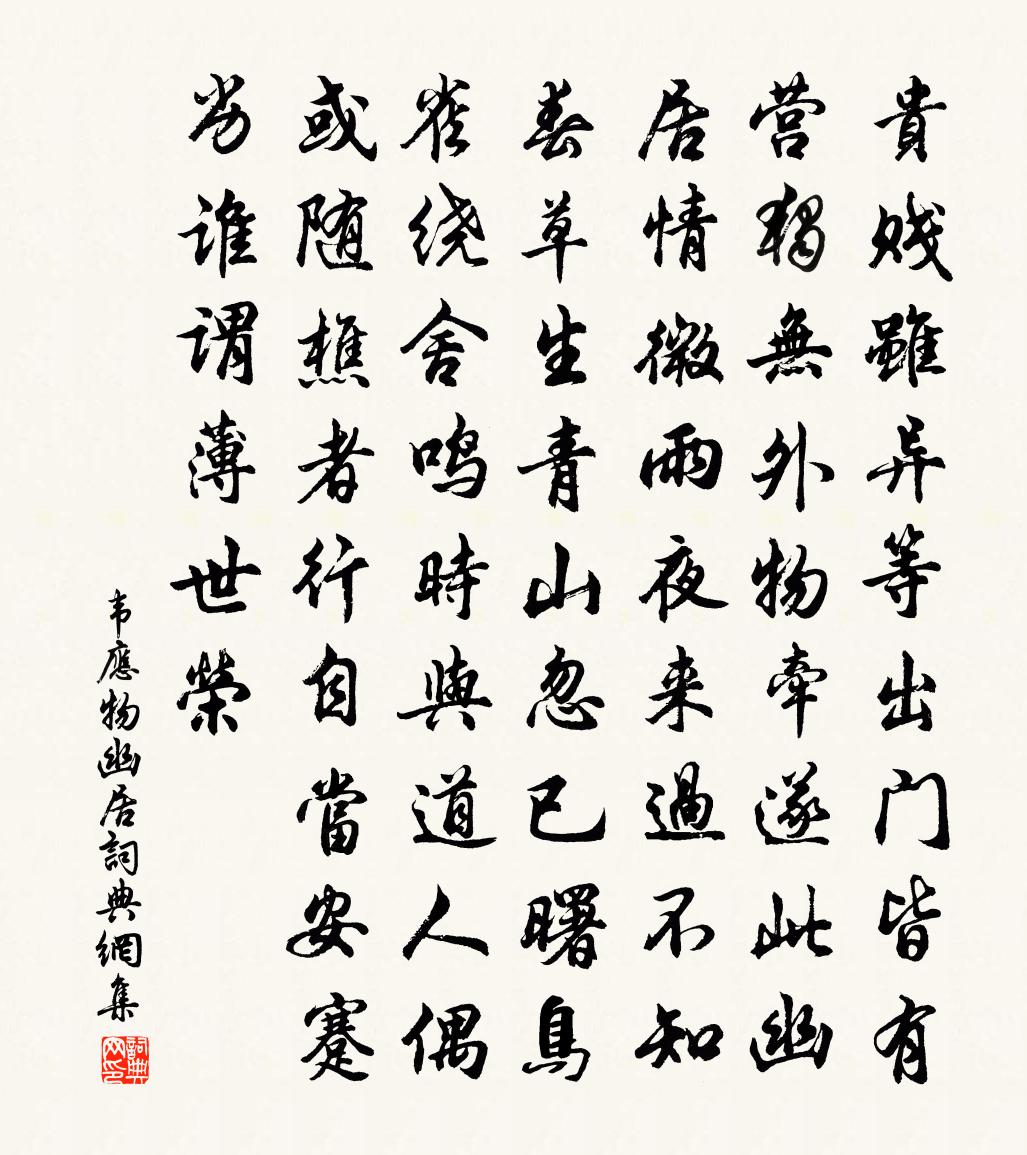 貴賎雖异等出门皆有
营獨無外物牽遂此幽
居情微雨夜来過不知
春草生青山忽已曙鳥
雀绕舍鸣時與道人偶
或随樵者行自當安蹇
劣谁谓薄世榮
韦應物幽居詞典網集
詞典网印